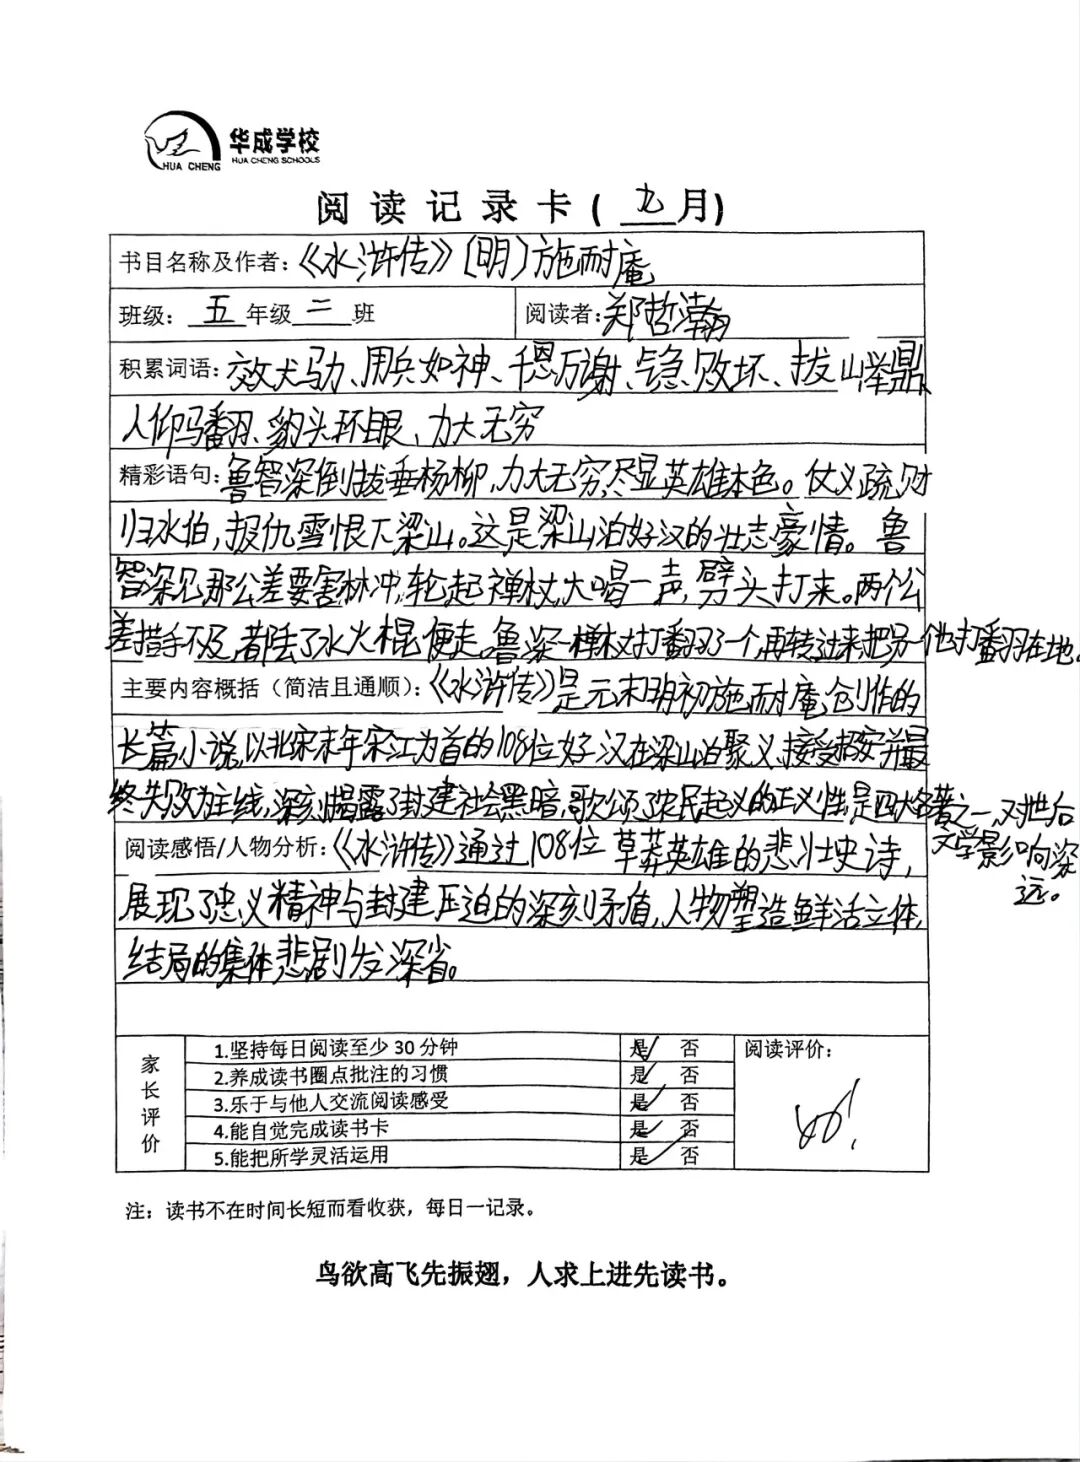 华成学校
HUA CHENG
HUA CHENG SCHOOLS
阅读记录卡(九月)
书目名称及作者:《水浒传》〔明〕施耐庵
班级:五年级二班 阅读者:郑哲瀚
积累词语:效犬马力、用兵如神、千恩万谢、气急败坏、拔山举鼎、
人仰马翻、豹头环眼、力大无穷
精彩语句:鲁智深倒拔垂杨柳,力大无穷,尽显英雄本色。仗义疏财
归水伯,报仇雪恨下梁山。这是梁山泊好汉的壮志豪情。鲁
智深见那公差要害林冲,轮起禅杖,大喝一声,劈头打来。两个公
差措手不及,都丢了水火棍,便走。鲁深一禅杖打翻了一个,再转过来,把另一他打翻在地。
主要内容概括(简洁且通顺):《水浒传》是元末明初施耐庵创作的
长篇小说,以北宋末年宋江为首的108位好汉在梁山泊聚义、接受招安并最
终失败为主线,深刻揭露了封建社会黑暗,歌颂了农民起义的正义性,是四大名著之一,对世后
文学影响深
远。
阅读感悟/人物分析:《水浒传》通过108位草莽英雄的悲壮史诗,
展现了忠义精神与封建压迫的深刻矛盾,人物塑造鲜活立体,
结局的集体悲剧发深省。
家长评价
1.坚持每日阅读至少30分钟 是 否
2.养成读书圈点批注的习惯 是 否
3.乐于与他人交流阅读感受 是 否
4.能自觉完成读书卡 是 否
5.能把所学灵活运用 是 否
阅读评价:
注:读书不在时间长短而看收获,每日一记录。
鸟欲高飞先振翅,人求上进先读书。